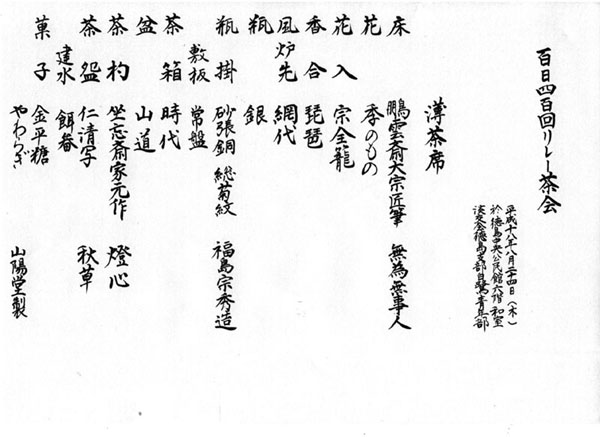 百日四百回リレー茶会
平成十八年八月二十四日（木）
於 徳島中央公民館六階 和室
淡交会徳島支部白鷺青年部
薄茶席
床 鵬雲斎大宗匠筆 無為無事人
花 季のもの
花入 宗全籠
香合 琵琶
風炉先 網代
瓶 銀
瓶掛 砂張銅 総菊紋 福島宗秀造
敷板 常盤
茶箱 時代
盆 山道
茶杓 坐忘斎家元作 燈心
茶盌 仁清写 秋草
建水 餌畚
菓子 金平糖
やわらぎ 山陽堂製